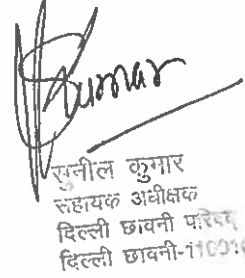 Kumar
सुनील कुमार
सहायक अधीक्षक
दिल्ली छावनी परिषद
दिल्ली छावनी-110010